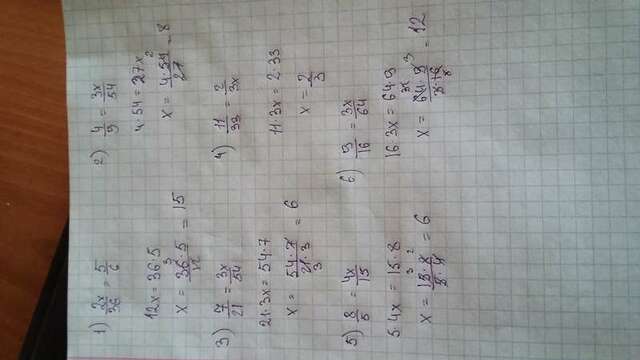 1) 2x/36 = 5/6
12x = 36·5
x = 36·5/12 = 15
3
2) 4/9 = 3x/54
4·54 = 27x
x = 4·54/27 = 8
2
3) 7/21 = 3x/54
21·3x = 54·7
x = 54·7/21·3 = 6
3
4) 11/33 = 2/3x
11·3x = 2·33
x = 2/3
5) 8/5 = 4x/15
5·4x = 15·8
x = 15·8/5·4 = 6
3 2
6) 9/16 = 3x/64
16·3x = 64·9
x = 64·9/3·16 = 12
3
8